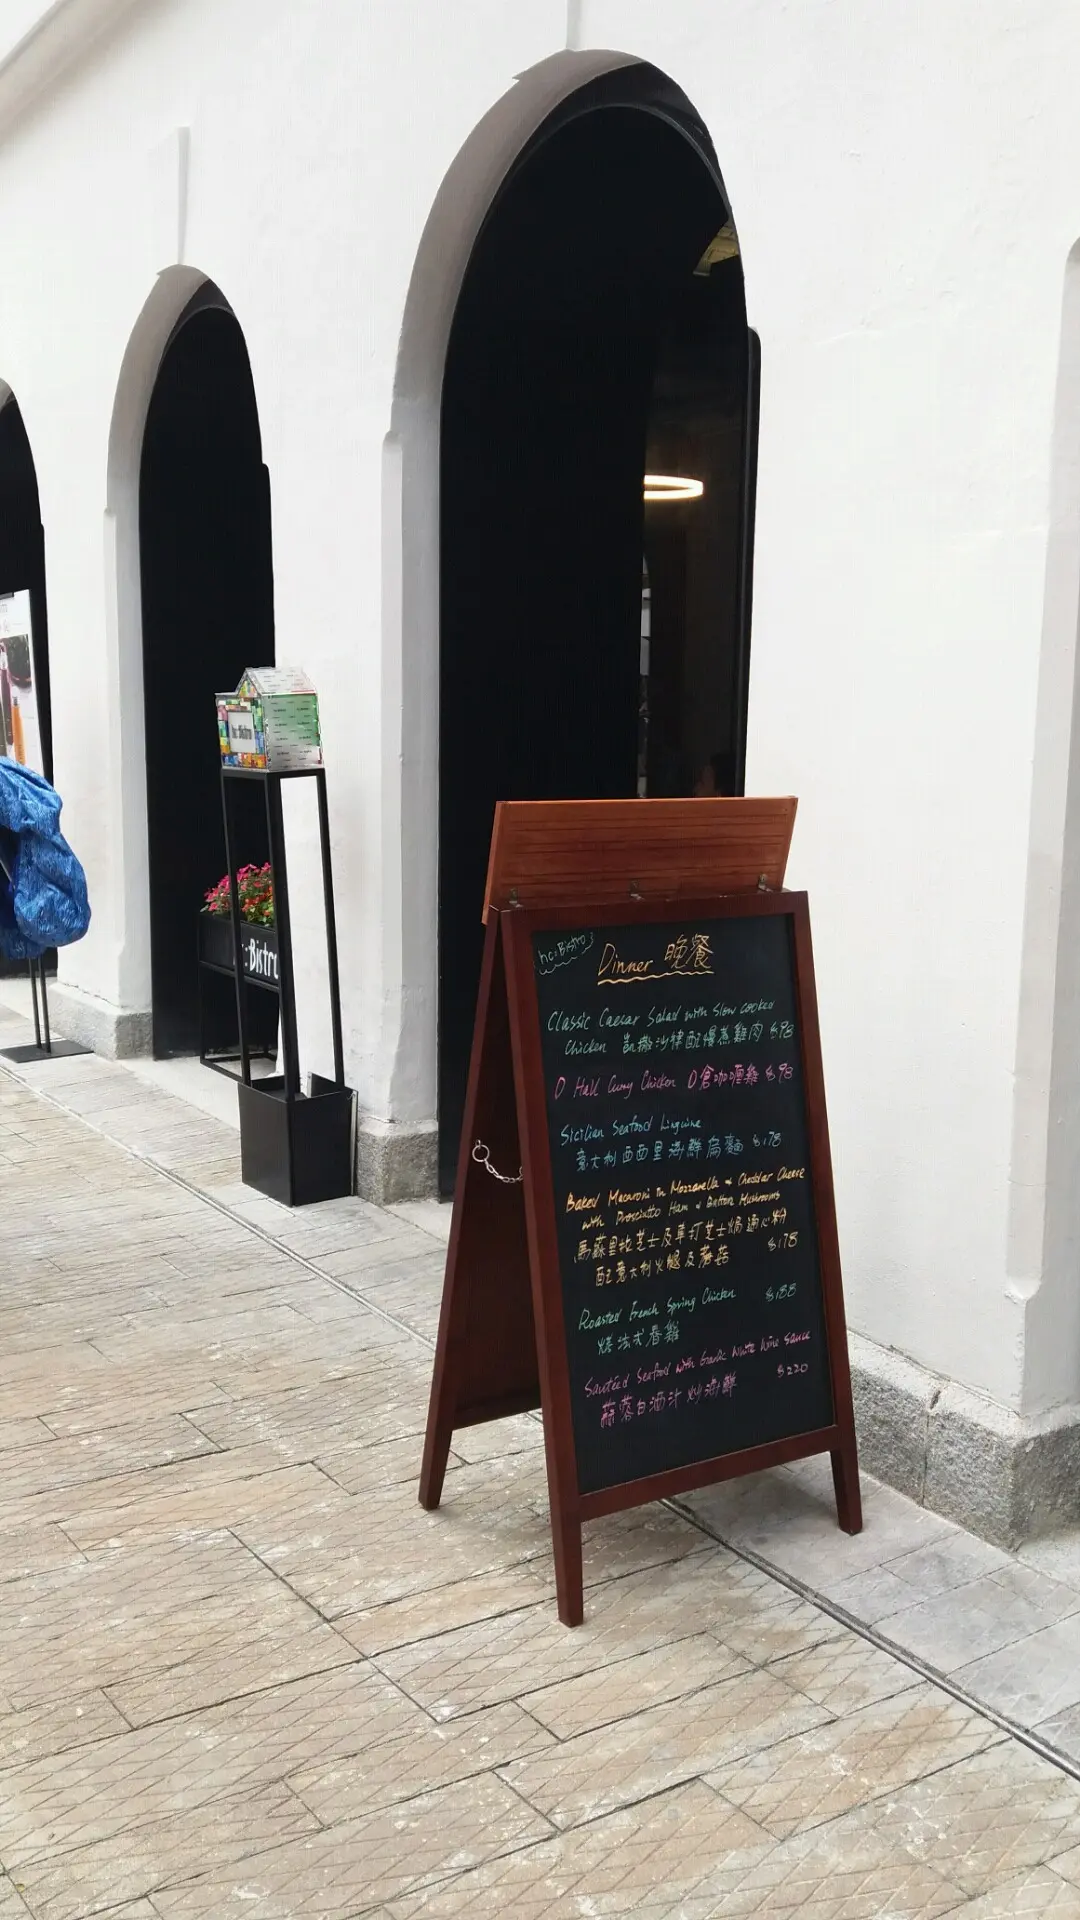 hc:Bistro
Dinner 晚餐
Classic Caesar Salad with Slow cooked
Chicken 凱撒沙律配慢煮雞肉 $98
D Hall Curry Chicken D倉咖喱雞 $98
Sicilian Seafood Linguine
意大利西西里海鮮扁麵 $178
Baked Macaroni in Mozzarella & Cheddar Cheese
with Prosciutto Ham & Button Mushrooms
馬蘇里拉芝士及車打芝士焗通心粉
配意大利火腿及蘑菇 $178
Roasted French Spring Chicken $188
烤法式春雞
Sautéed Seafood with Garlic White Wine Sauce
蒜蓉白酒汁炒海鮮 $220
hc:Bistro
hc:Bistro